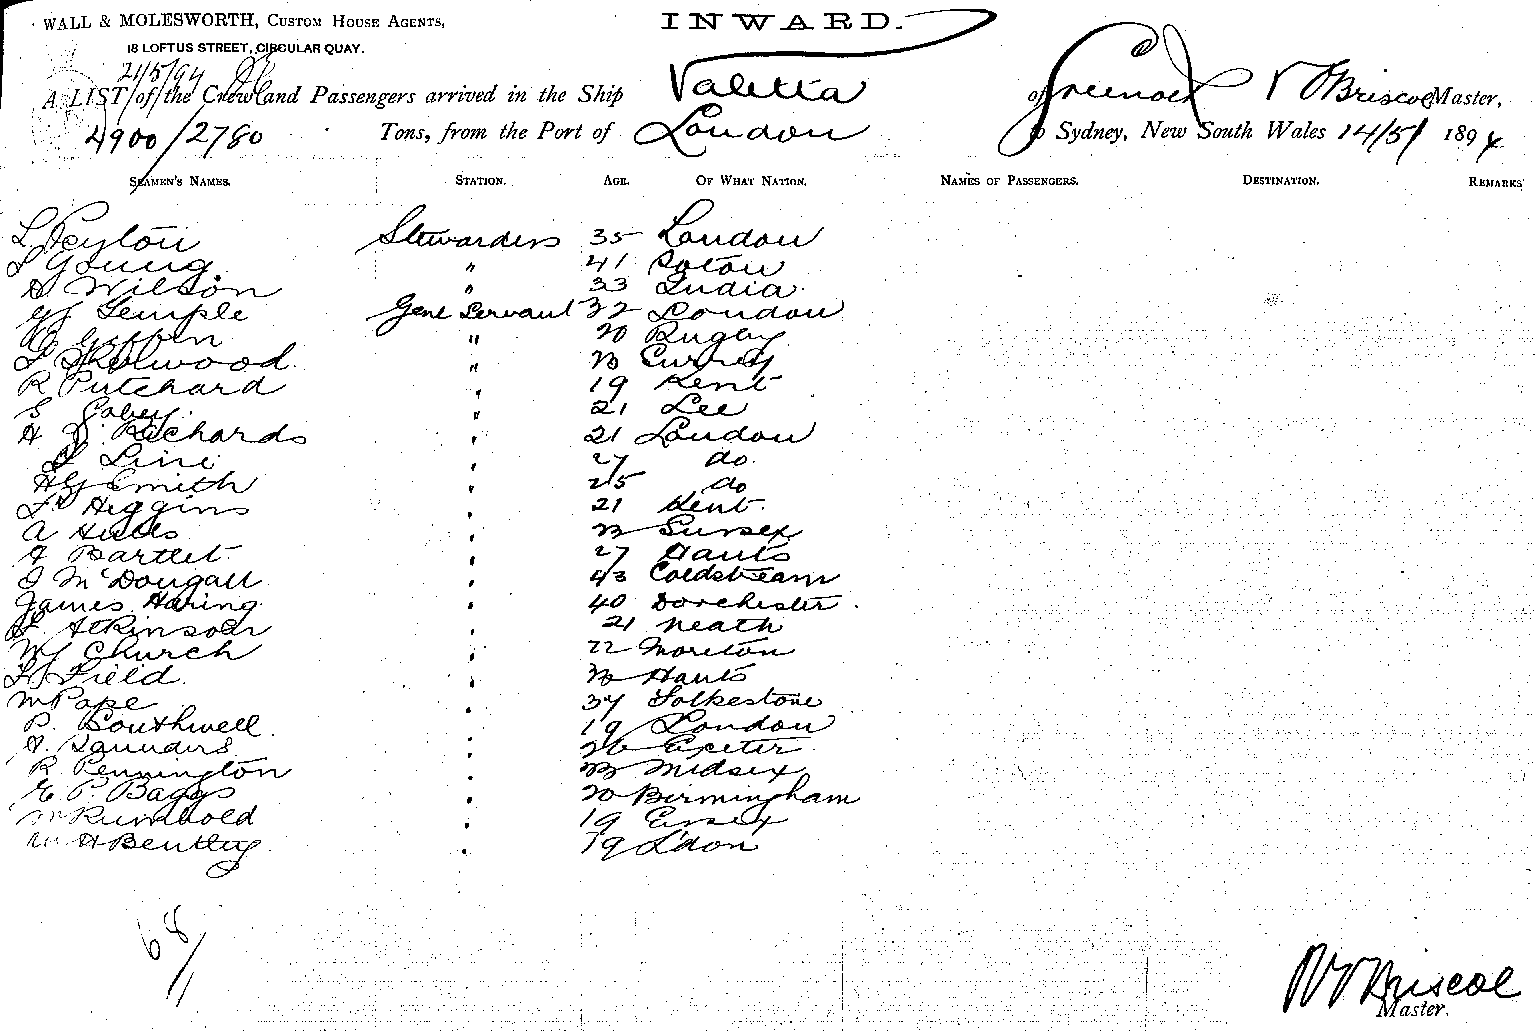 WALL & MOLESWORTH, CUSTOM HOUSE AGENTS,
18 LOFTUS STREET, CIRCULAR QUAY.
INWARD.
21/5/94
A LIST of the Crew and Passengers arrived in the Ship Valetta of Greenock Briscoe Master,
4900/2780 Tons, from the Port of London to Sydney, New South Wales 14/5/ 1894
SEAMEN'S NAMES. STATION. AGE. OF WHAT NATION. NAMES OF PASSENGERS. DESTINATION. REMARKS
L Peyton Stewardess 35 London
Young " 41 Soton
Wilson " 33 India
Temple Genl Servant 32 London
Giffen " 20 Rugby
Skilwood " Surrey
R Putchard " 19 Kent
S Gabey " 21 Lee
H Richards " 21 London
Line " 27 do
Smith " 25 do
Higgins " 21 Kent
A Hills " Sussex
Bartlet " 27 Hants
McDougall " 43 Coldstream
James Haring " 40 Dorchester
Atkinson 21 Neath
W Church " 22 Moreton
Field " Hants
M Pope " 37 Folkestone
P. Southwell " 19 London
Saunders " 26 Exeter
R Pennington " Midsex
E P. Baggs " 20 Birmingham
M Rumbold " 19 Essex
W H Bentley " 19 L'don
68/1
Briscoe
Master.